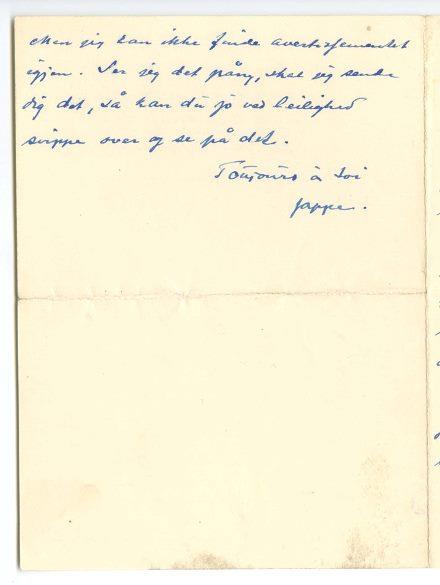 Men jeg kan ikke finde avertissementet
igjen. Ser jeg det påny, skal jeg sende
dig det, så kan du jo ved leilighed
svippe over og se på det.
Toujours à toi
Jappe.